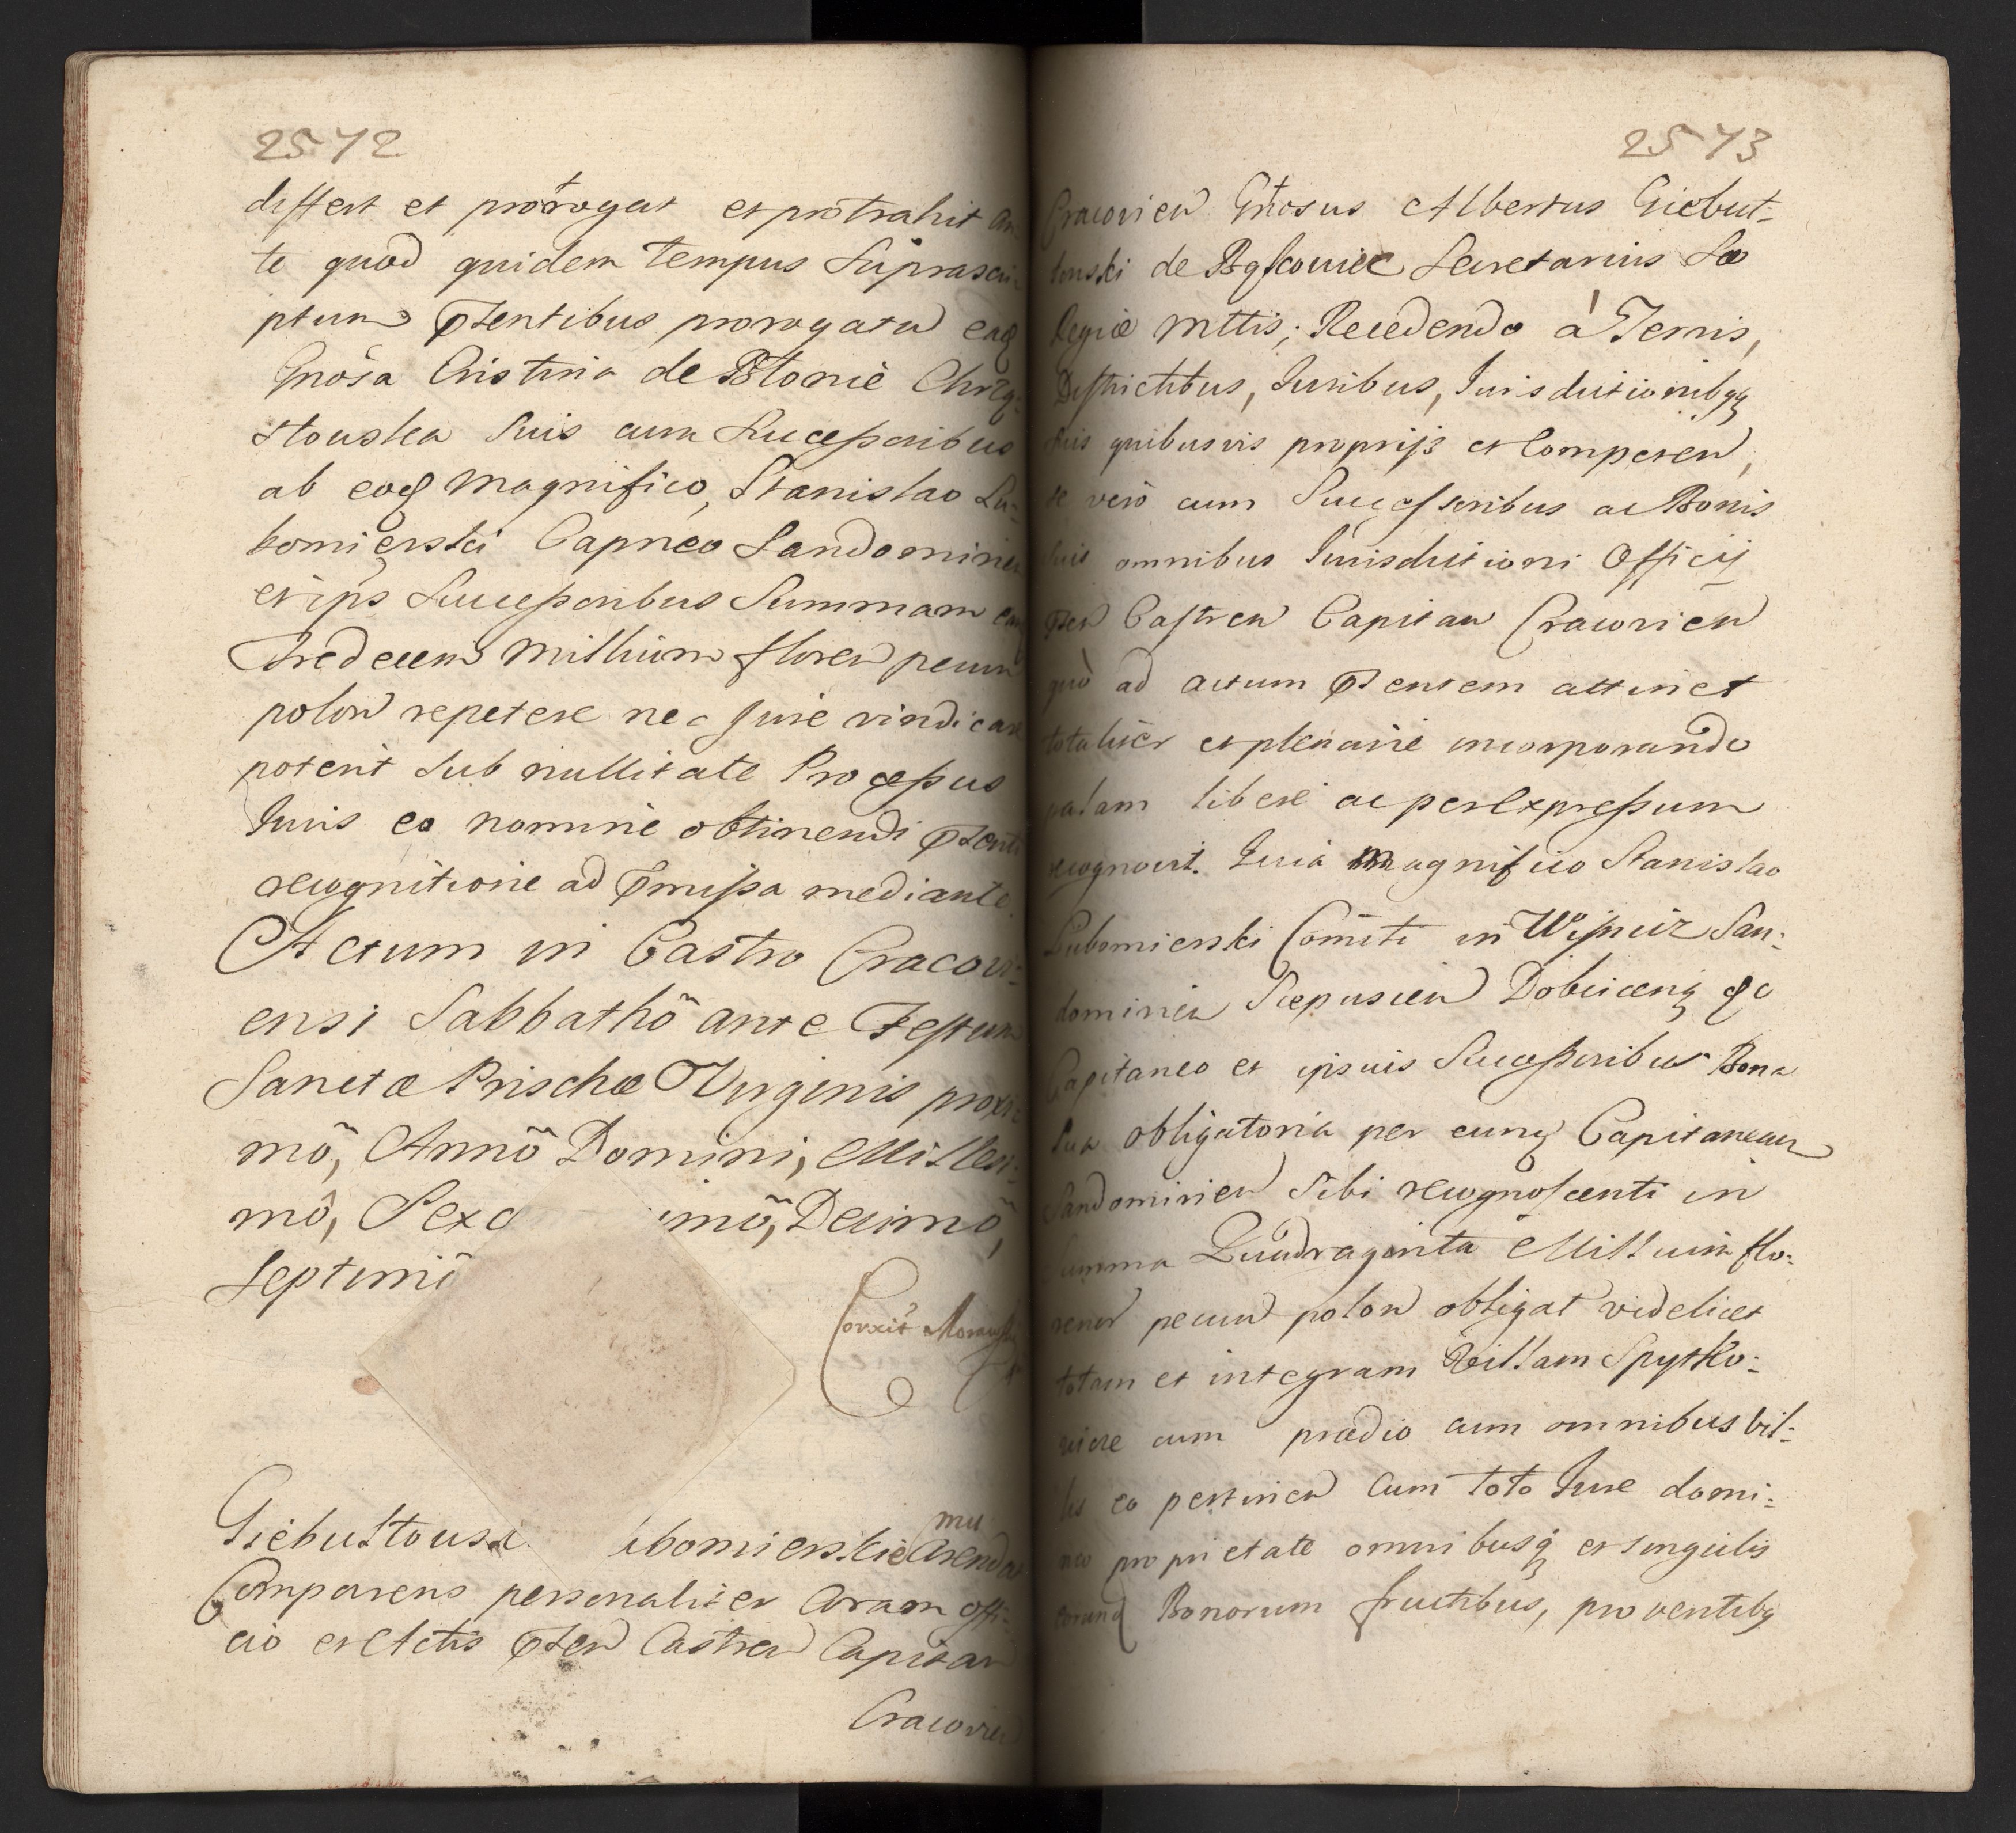 2572
differt et prorogat et protrahit an
te quod quidem tempus Suprascri
ptum pntentibus prorogatu eaq
Gnosa Cristina de Błonie Chrzą-
stouska Suis cum Sucessoribus
ab eoq Magnifico, Stanislao Lu-
bomierski Capneo Sandomirien
et ips Successoribus Summam
Tredecem Millium floren pecun
polon repetere nec Jure vindicare
poterit Sub nullitate Processus
Juris eo nomine obtinendi pntenti
recognitione ad pmissa mediante.
Actum in Castro Cracovi-
ensi Sabbathō ante Festum
Sanctæ Prischæ Virginis proxi
mō, Annō Domini, Millesi-
mō, Sexc imō, Decimō,
Septimō
Corxit Morawski
Giebułtousk ubomierskie mu
Arendat
Comparens personaliter Coram offi-
cio et Actis pnten Castren Capitan
Cracovien
2573
Cracovien Gnosus Albertus Giebuł-
touski de Secretarius Sæ
Regiæ Mttis; Recedendo à Terris,
Districtibus, Juribus, Jurisdictionibqq
suis quibusvis proprijs et Competen,
se verò cum Successoribus ac Bonis
suis omnibus Jurisdictioni Officij
pnten Castren Capitan Cracovien
quò ad actum pntensem attinet
totaliter et plenarie incorporando
palam libere ac per Expressum
recognovit. Quia Magnifico Stanislao
Lubomierski Comiti in Wisnicz San-
domirien Scepusien Dobcicenq &c
Capitaneo et ipsius Successoribus Bona
Sua obligatoria per eunq Capitaneum
Sandomirien Sibi recognoscenti in
Summa Quadraginta Millium flo-
renor pecun polon obligat videlicet
totam et integram Villam Spytko-
wice cum prædio cum omnibus vil-
lis eo pertinen Cum toto Jure domi-
neo proprietate omnibusq et singulis
eorunq Bonorum fructibus, proventibq